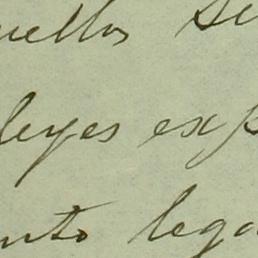 uellos su
leyes exp
nto lega